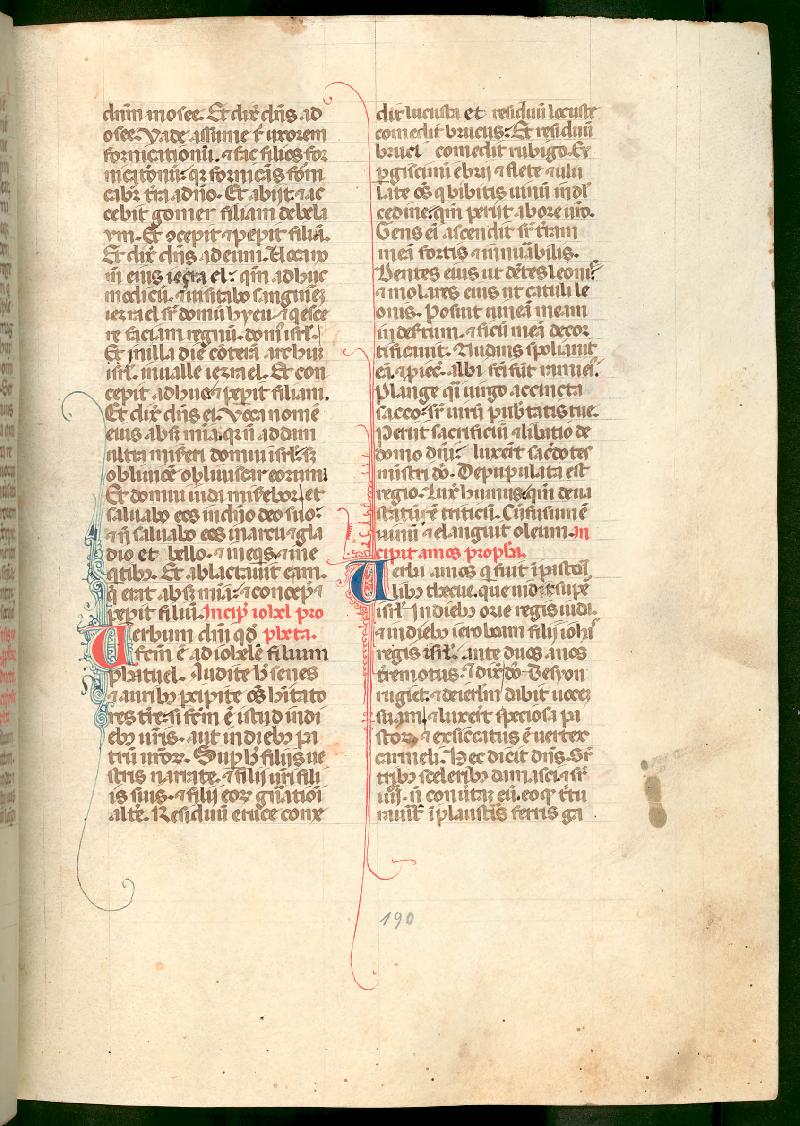 dnm in osee. Et dix dns ad
osee. Vade assume t uxorem
fornicationu. & fac filios for
nicationu: qr fornicans forni
cabr tra a dno. Et abijt & ac
cepit gomer filiam debela
ym. Et 9cepit & pepit filiu.
Et dix dns ad eum. Voca no
m eius iezrael: qm adhuc
modicu. & uisitabo sanguinez
iezrael sr domu hyeu. & qesce
re faciam regnu. dom isrl.
Et in illa die coteram archum
isrl. in ualle iezrael. Et con
cepit adhuc & pepit filiam.
Et dix dns ei. Voca nome
eius absq mia. qr n addam
ultra misreri domui isrl. sz
obliuioe obliuiscar eorum
Et domui iuda misrebor. et
saluabo eos in dno deo suo.
& n saluabo eos in arcu & gla
dio et bello. & in eqs. & in e
qtibz. Et ablactauit eam.
q erat absq mia. & concep &
pepit filiu. Incip iohel pro
Uerbum dni qd pheta.
fcm e ad iohele filium
phatuel. Audite h senes
& auribz pcipite os hitato
res tre. si fcm e istud in di
ebz uris. aut in diebz pa
tru uror. Sup h filijs ue
stris narrate. & filij uri fili
is suis. & filij eor gnationi
alte. Residuu eruce come
dit lucusta et residuu locuste
comedit brucus. Et residuu
bruci comedit rubigo. Ex
pgiscimi ebrij & flete & ulu
late os q bibitis uinu in dl
cedine. qm perijt ab ore uro.
Gens em ascendit sr tram
mea fortis & innuabilis.
Dentes eius ut detes leonis
& molares eius ut catuli le
onis. Posuit uinea meam
in desrtum. & ficu mea decor
ticauit. Nudans spoliauit
ea. & piec. albi fci sut rami ei.
Plange qi uirgo accincta
sacco. sr uiru pubtatis tue.
Perijt sacrificiu & libatio de
domo dni. luxert sacdotes
mistri dni. Depopulata est
regio. Lux humus. qm deua
statu e triticu. Cofusum e
uinu & elanguit oleum. In
cipit amos propha.
Uerba amos q fuit i pastori
libz thecue. que uidit supe
isrl. In diebz ozie regis iuda.
& in diebz ieroboam filij iohas
regis isrl. ante duos anos
tremotus. & dix. Dns de syon
rugiet. & de ierlm dabit uocez
suam. & luxert speciosa pa
stor. & exsiccatus e uertex
carmeli. Hec dicit dns. Sr
tribz sceleribz damasci. & sr
iiii. n conutaz eu. eo q tritu
rauit i plaustris ferris ga
190